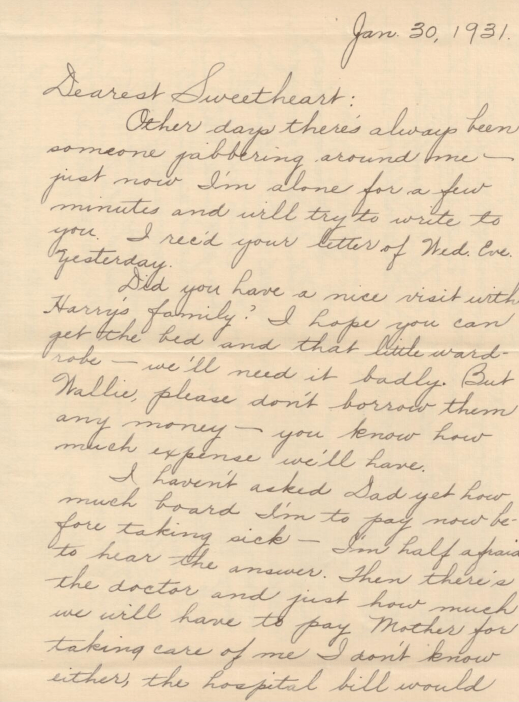 Jan. 30, 1931.
Dearest Sweetheart:
Other days there's always been
someone jabbering around me —
just now I'm alone for a few
minutes and will try to write to
you. I rec'd your letter of Wed. Eve.
yesterday.
Did you have a nice visit with
Harry's family? I hope you can
get the bed and that little ward-
robe — we'll need it badly. But
Wallie, please don't borrow them
any money — you know how
much expense we'll have.
I haven't asked Dad yet how
much board I'm to pay now be-
fore taking sick — I'm half afraid
to hear the answer. Then there's
the doctor and just how much
we will have to pay Mother for
taking care of me I don't know
either, the hospital bill would